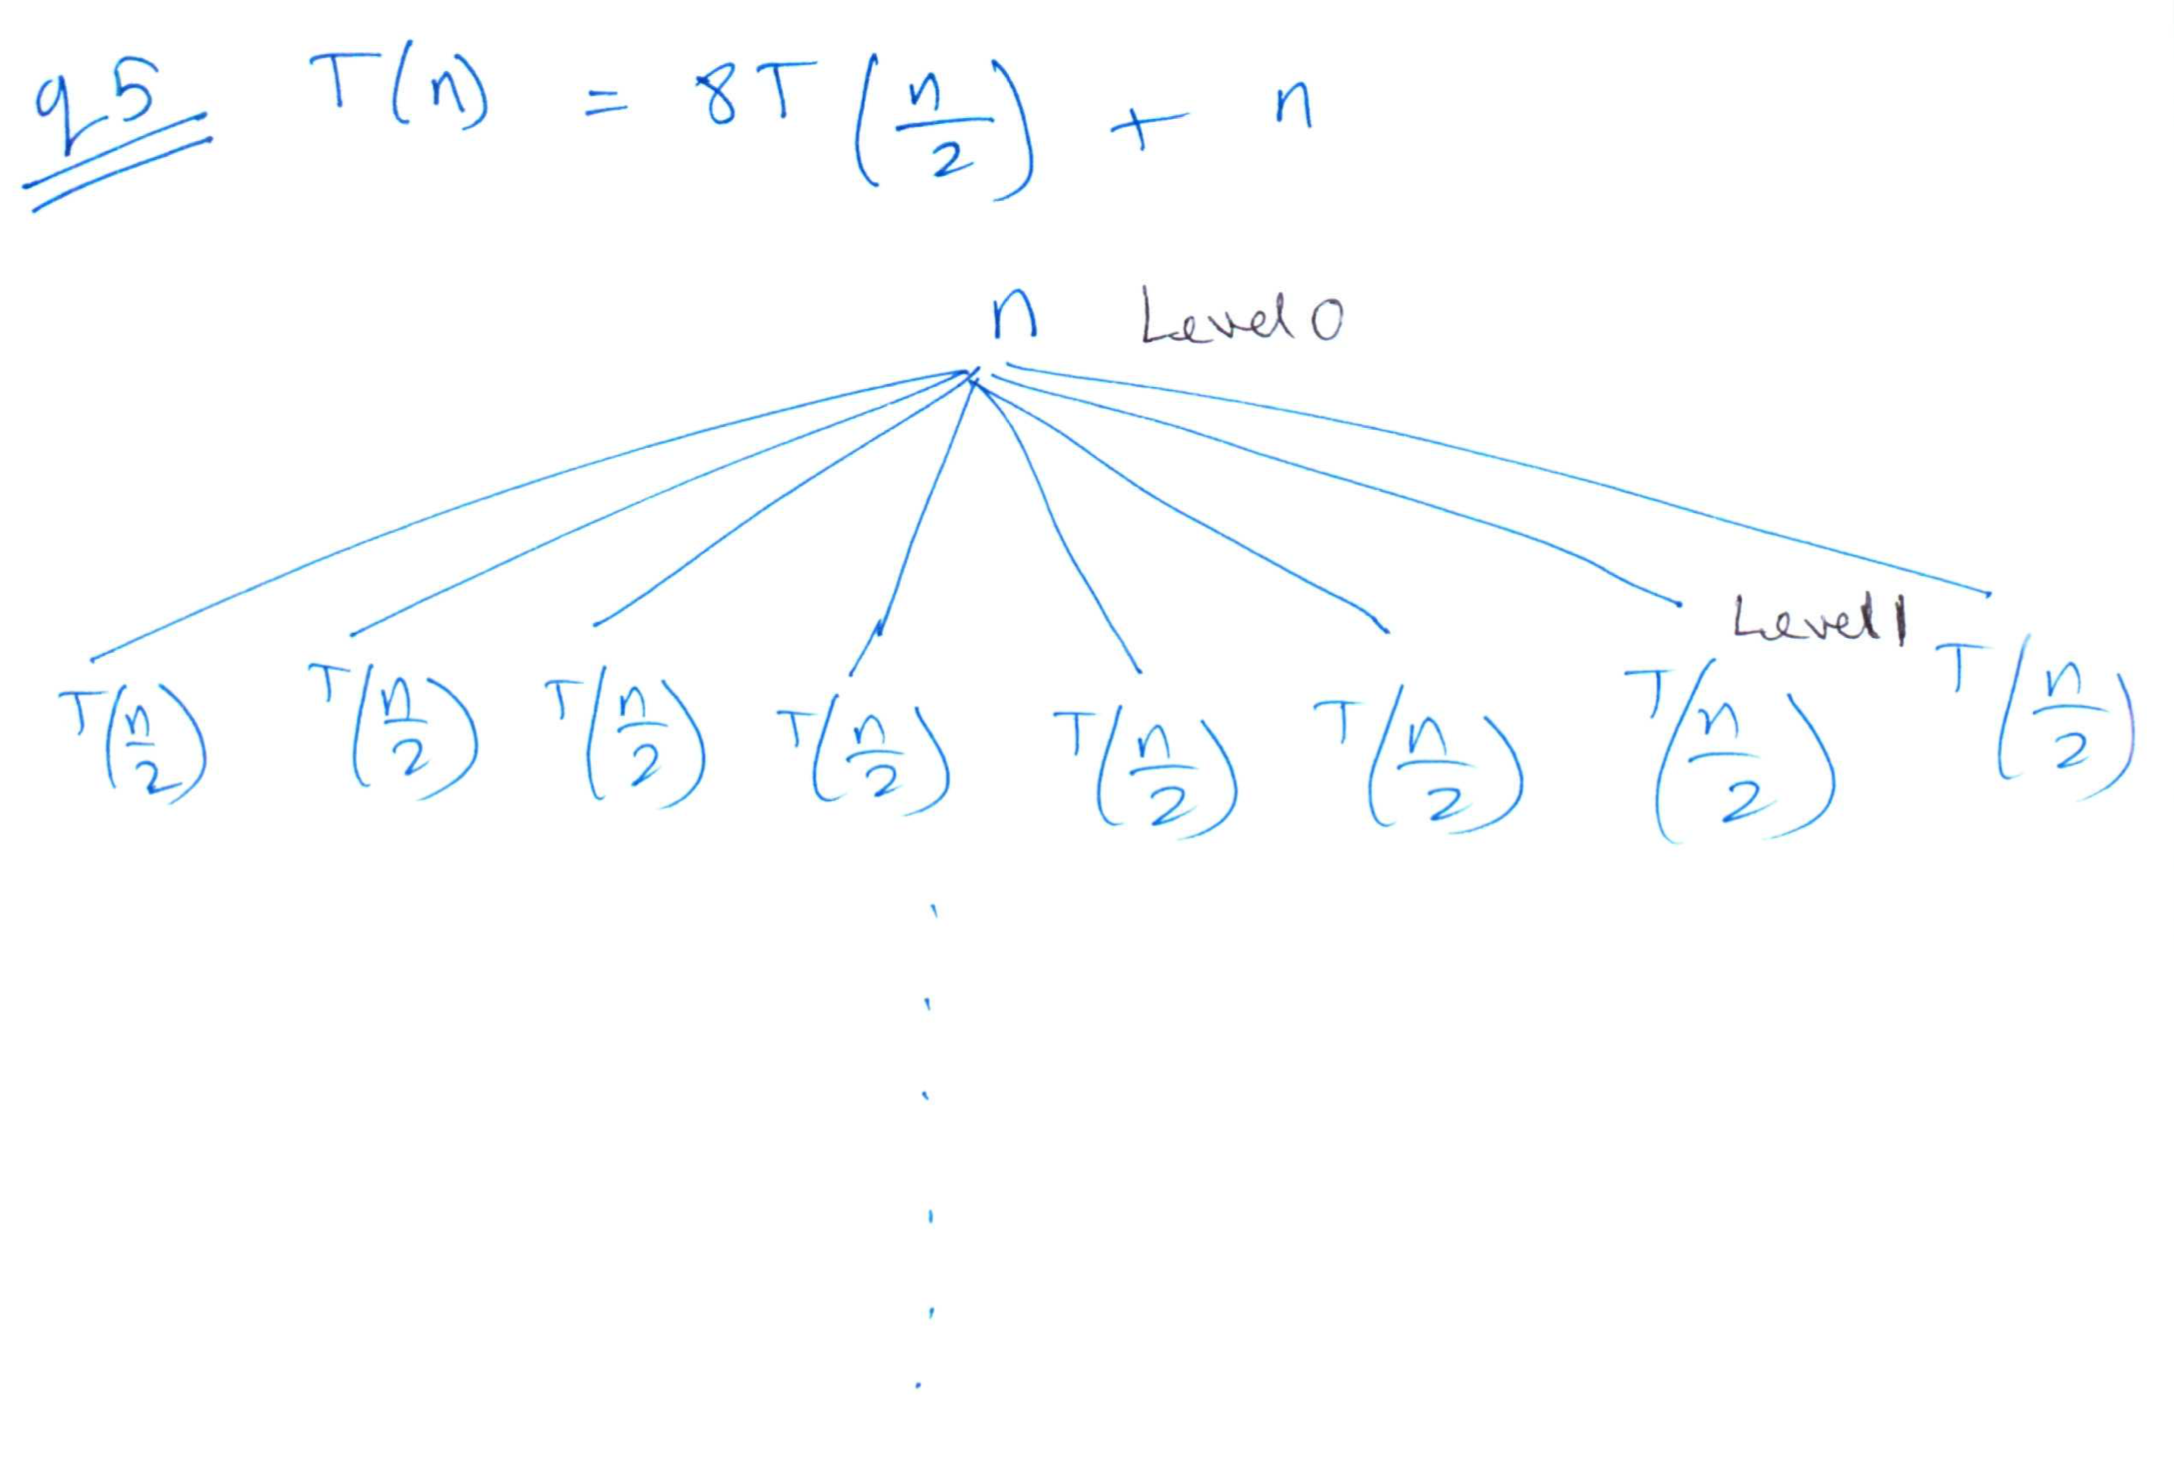 q5 T(n) = 8T(n/2) + n
n Level 0
Level 1
T(n/2) T(n/2) T(n/2) T(n/2) T(n/2) T(n/2) T(n/2) T(n/2)